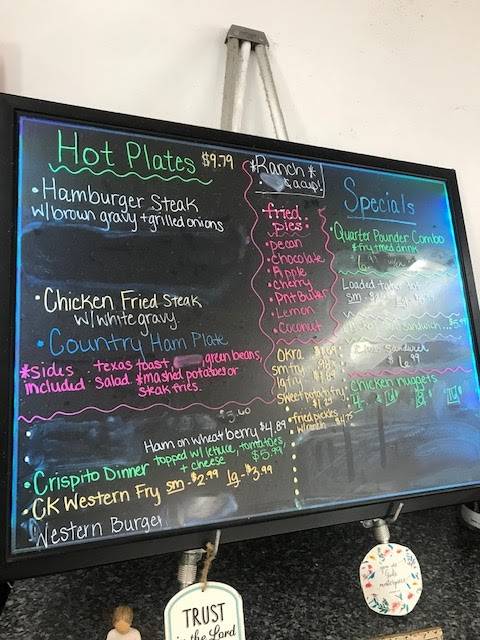 Hot Plates $9.79
• Hamburger Steak
w/brown gravy + grilled onions
• Chicken Fried Steak
w/white gravy
• Country Ham Plate
*sides included: texas toast green beans,
salad *mashed potatoes or
steak fries.
$3.60
Ham on wheatberry $4.89
• Crispito Dinner topped w/ lettuce, tomatoes,
+ cheese $5.99
• CK Western Fry sm $2.99 lg - $3.99
Western Burger
*Ranch*
a cup!
• fried
pies •
• pecan
• Chocolate
• Apple
• Cherry
• Pnt Butter
• Lemon
• Coconut
Okra
sm fry
lg fry
sweet potato fry
• fried pickles
w/ranch $4.75
Specials
• Quarter Pounder Combo
+ fry + med drink
Loaded tater tot
sm lg
sandwich... $5.99
sandwich
$6.99
• Chicken nuggets
TRUST
in the Lord